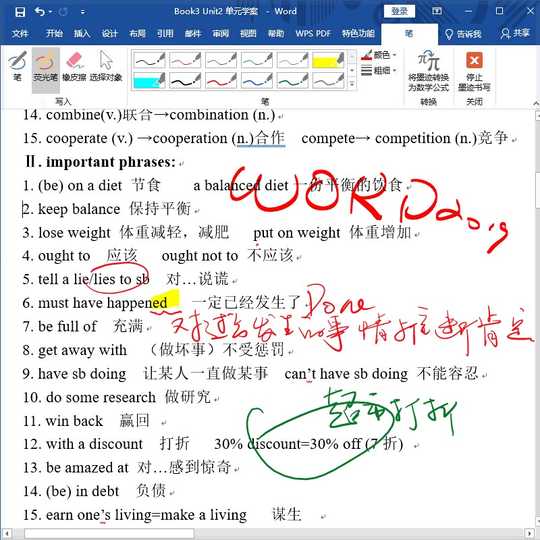 Book3 Unit2 单元学案 - Word
登录
文件 开始 插入 设计 布局 引用 邮件 审阅 视图 帮助 WPS PDF 特色功能 笔 告诉我 共享
笔 荧光笔 橡皮擦 选择对象
颜色
粗细
将墨迹转换为数学公式
停止墨迹书写
写入 笔 转换 关闭
14. combine(v.)联合→combination (n.)
15. cooperate (v.) →cooperation (n.)合作 compete→ competition (n.)竞争
Ⅱ. important phrases:
1. (be) on a diet 节食 a balanced diet 一份平衡的饮食
WORD
2. keep balance 保持平衡
3. lose weight 体重减轻，减肥 put on weight 体重增加
4. ought to 应该 ought not to 不应该
5. tell a lie/lies to sb 对…说谎
6. must have happened 一定已经发生了
Done
7. be full of 充满
对过去发生的事情推断肯定
8. get away with （做坏事）不受惩罚
9. have sb doing 让某人一直做某事 can't have sb doing 不能容忍
10. do some research 做研究
11. win back 赢回
打折
12. with a discount 打折 30% discount=30% off (7 折)
13. be amazed at 对…感到惊奇
14. (be) in debt 负债
15. earn one's living=make a living 谋生